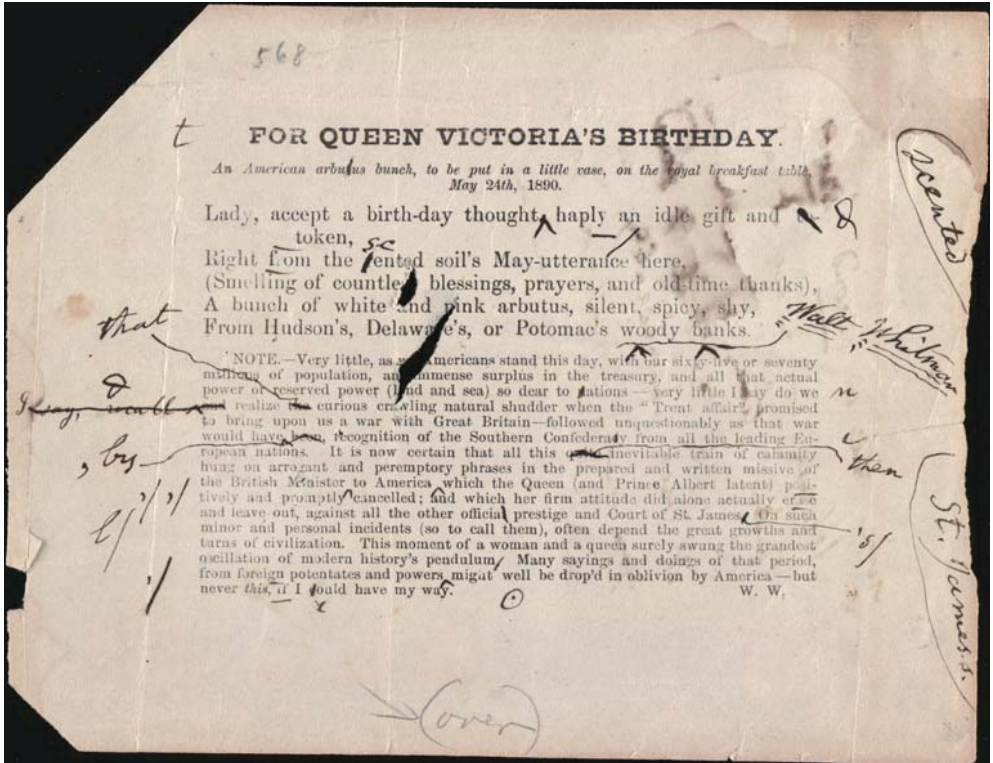 568
t FOR QUEEN VICTORIA'S BIRTHDAY.
An American arbutus bunch, to be put in a little vase, on the royal breakfast table,
May 24th, 1890.
Lady, accept a birth-day thought, haply an idle gift and &
token,
sc
Right from the ented soil's May-utterance here,
scented
(Smelling of countle blessings, prayers, and old-time thanks),
A bunch of white and pink arbutus, silent, spicy, shy,
From Hudson's, Delaware's, or Potomac's woody banks.
Walt Whitman
that
NOTE.—Very little, as Americans stand this day, with our sixty-five or seventy
millions of population, an immense surplus in the treasury, and all that actual
&
power or reserved power (land and sea) so dear to nations — very little I may do we n
I say, recall
and realize the curious crawling natural shudder when the "Trent affair" promised
to bring upon us a war with Great Britain—followed unquestionably as that war
would have been, recognition of the Southern Confederacy from all the leading Eu- c
, by
ropean nations. It is now certain that all this inevitable train of calamity
then
hung on arrogant and peremptory phrases in the prepared and written missive of
the British Minister to America which the Queen (and Prince Albert latent) posi-
,/ ,/
tively and promptly cancelled; and which her firm attitude did alone actually erase
l/
and leave out, against all the other official prestige and Court of St. James. On such
St. James's.
minor and personal incidents (so to call them), often depend the great growths and 's/
turns of civilization. This moment of a woman and a queen surely swung the grandest
oscillation of modern history's pendulum. Many sayings and doings of that period,
,/
from foreign potentates and powers might well be drop'd in oblivion by America—but
never this, if I could have my way. W. W.
(over)